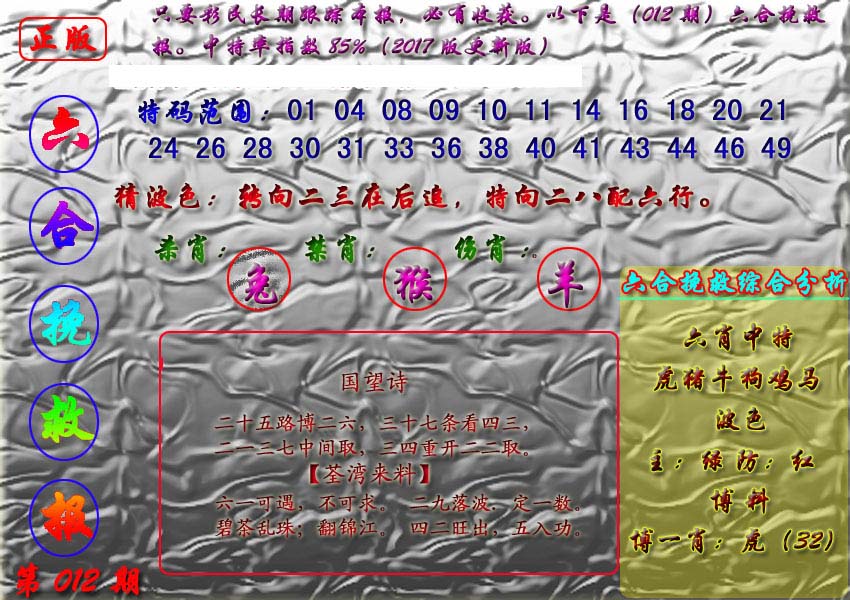 正版
只要彩民长期跟踪本报，必有收获。以下是（012期）六合挽救
报。中特率指数85%（2017版更新版）
特码范围：01 04 08 09 10 11 14 16 18 20 21
24 26 28 30 31 33 36 38 40 41 43 44 46 49
猜波色：转向二三在后追，特向二八配六行。
杀肖：兔 禁肖：猴 伤肖：羊
六合挽救报
第012期
国望诗
二十五路博二六，三十七条看四三，
二一三七中间取，三四重开二二取。
【荃湾来料】
六一可遇，不可求。 二九落波．定一数。
碧茶乱珠；翻锦江。 四二旺出，五入功。
六合挽救综合分析
六肖中特
虎猪牛狗鸡马
波色
主：绿防：红
博料
博一肖：虎（32）